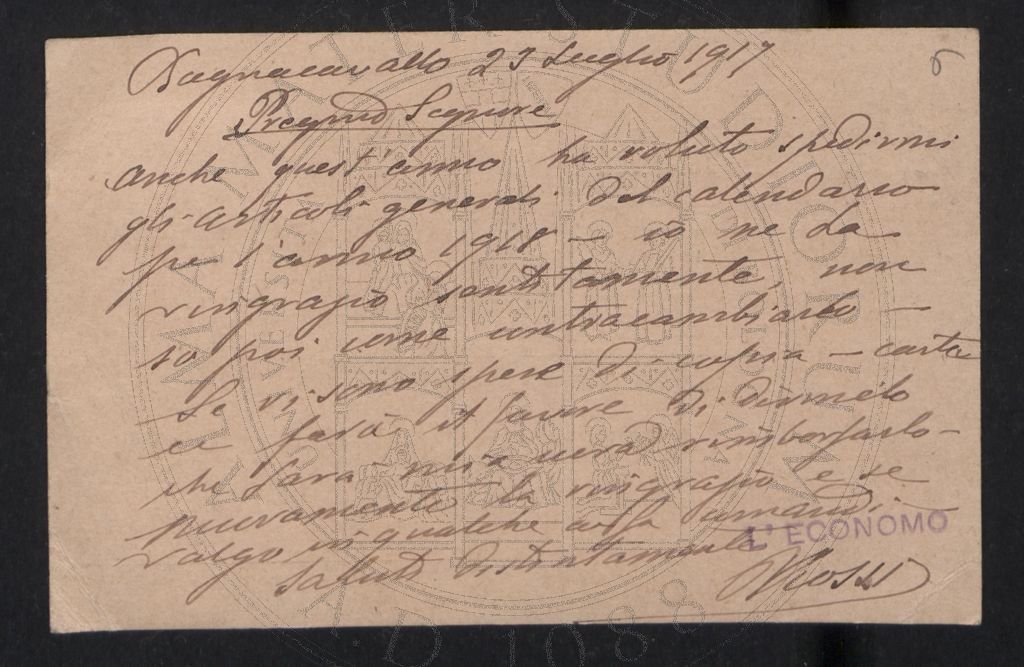 Bagnacavallo 23 Luglio 1917
6
Pregmo Signore
anche quest'anno ha voluto spedirmi
gli articoli generali del calendario
pe l'anno 1918 – io ne la
ringrazio sentitamente, non
so poi come contracambiarlo –
Se vi sono spese di copia – carta
ci farà il favore di dirmelo
che sarà mia cura rimborsarlo –
nuovamente la ringrazio e se
valgo in qualche cosa comandi
Saluti distintamente
L'ECONOMO
Rossi
ALMA MATER STUDIORUM
A.D. 1088